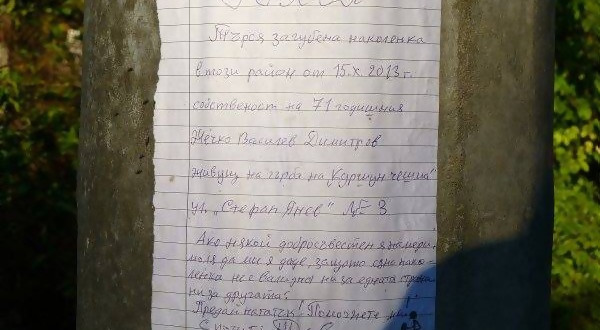 Търся загубена наколенка
в този район от 15.X.2013 г.
собственост на 71 годишния
Жечко Василев Димитров
живущ на гърба на "Куршун чешма"
ул. „Стефан Янев" № 3
Ако някой добросъвестен я намери
моля да ми я даде, защото една нако-
ленка не е валидна за едната страна
ни за другата!
Предай нататък! Помогнете ми!